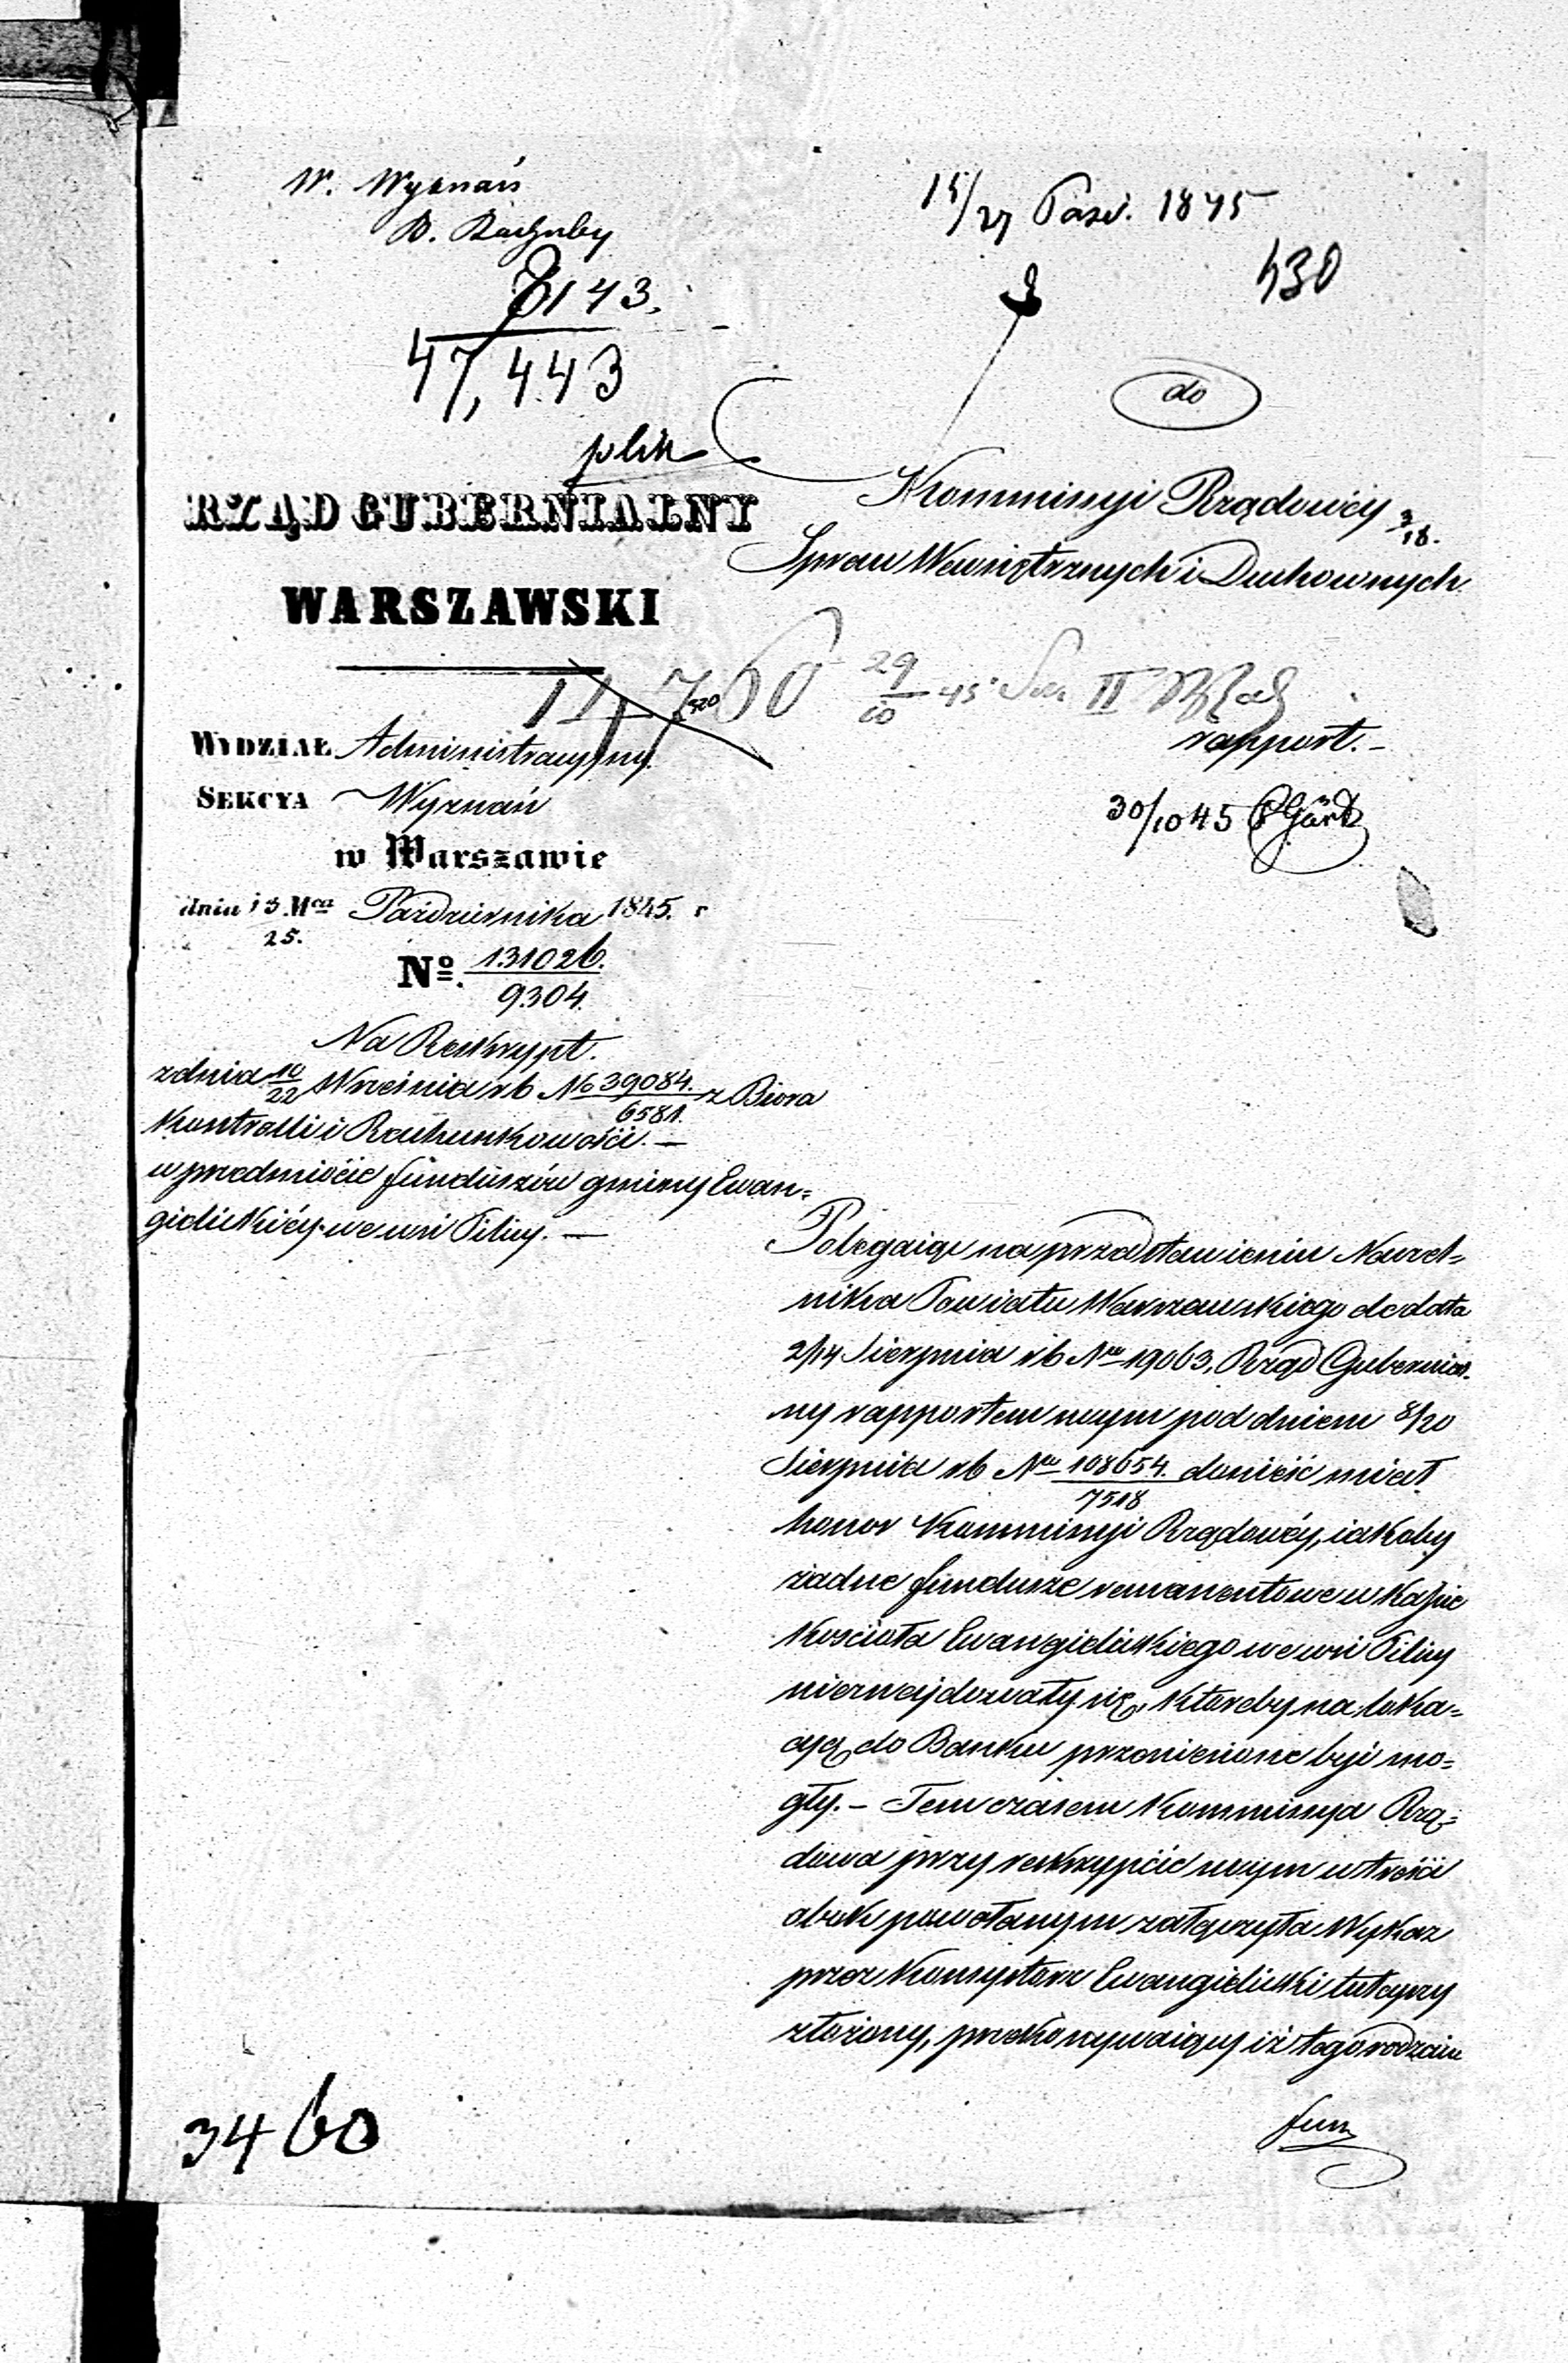 W. Wyznań
B. Rachuby
8143.
47,443
plik
15/27 Paźd. 1845
430
do
Kommissyi Rządowéy
Spraw Wewnętrznych i Duchownych
RZĄD GUBERNIALNY
WARSZAWSKI
11,760 29/10 45
rapport.–
30/10 45
WYDZIAŁ Administracyjny.
SEKCYA Wyznań
w Warszawie
dnia 13/25. Mca Października 1845. r
No. 131026./9304.
Na Reskrypt.
z dnia 10/22 Września rb No 39084./6581. z Biora
Kontrolli i Rachunkowości. —
w przedmiocie funduszów gminy Ewan=
gielickiéy we wsi Pilicy. —
Polegaiąc na przedstawieniu Naczel=
nika Powiatu Warszawskiego de data
2/14 Sierpnia rb Nro 19063, Rząd Gubernial.
ny rapportem swym pod dniem 8/20
Sierpnia rb Nro 108654./7518 donieść miał
honor Kommissyi Rządowéy, iakoby
żadne fundusze remanentowe w Kassie
Kościoła Ewangielickiego we wsi Pilicy
nieznajdowały się, któreby na loka=
cyą do Banku przeniesione być mo=
gły. – Tem czasem Kommissya Rzą=
dowa przy reskrypcie swym w treści
obok powołanym załączyła Wykaz
przez Konsystorz Ewangielicki tutejszy
złożony, przekonywaiący iż tego rodzaiu
fun
3460